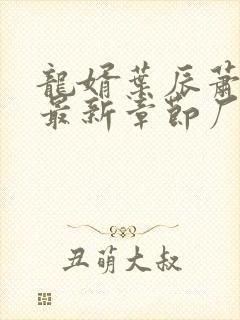 龍婿葉辰蕭
最新章節厂
丑萌大叔